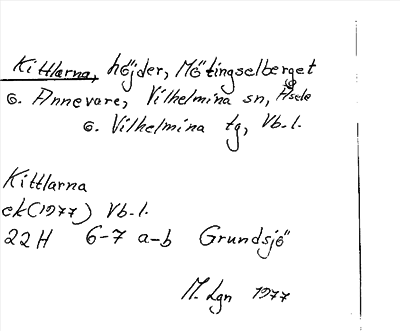 Kittlarna, höjder, Mötingselberget
o. Annevare, Vilhelmina sn, Åsele
o. Vilhelmina tg, Vb.l.
Kittlarna
ek(1977) Vb.l.
22H 6-7 a-b Grundsjö
M. Lgn 1977